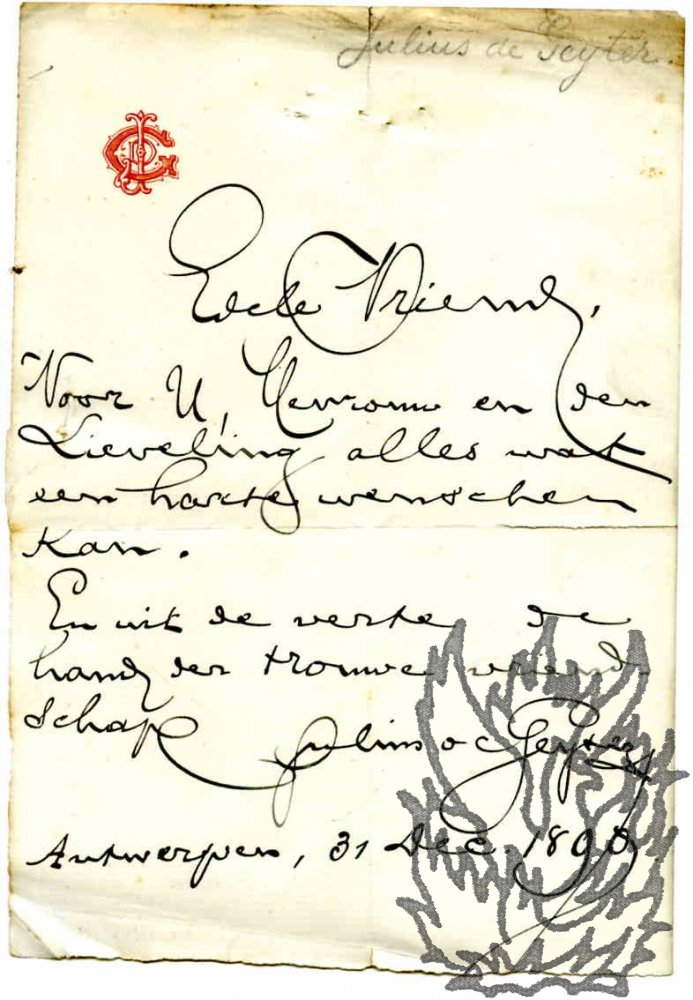 Julius de Geyter.
Edele Vriend,
Voor U, Mevrouw en den
Lieveling alles wat
een hartje wenschen
kan.
En uit de verte de
hand der trouwe vriend-
schap Julius de Geyter
Antwerpen, 31 Dec. 1890